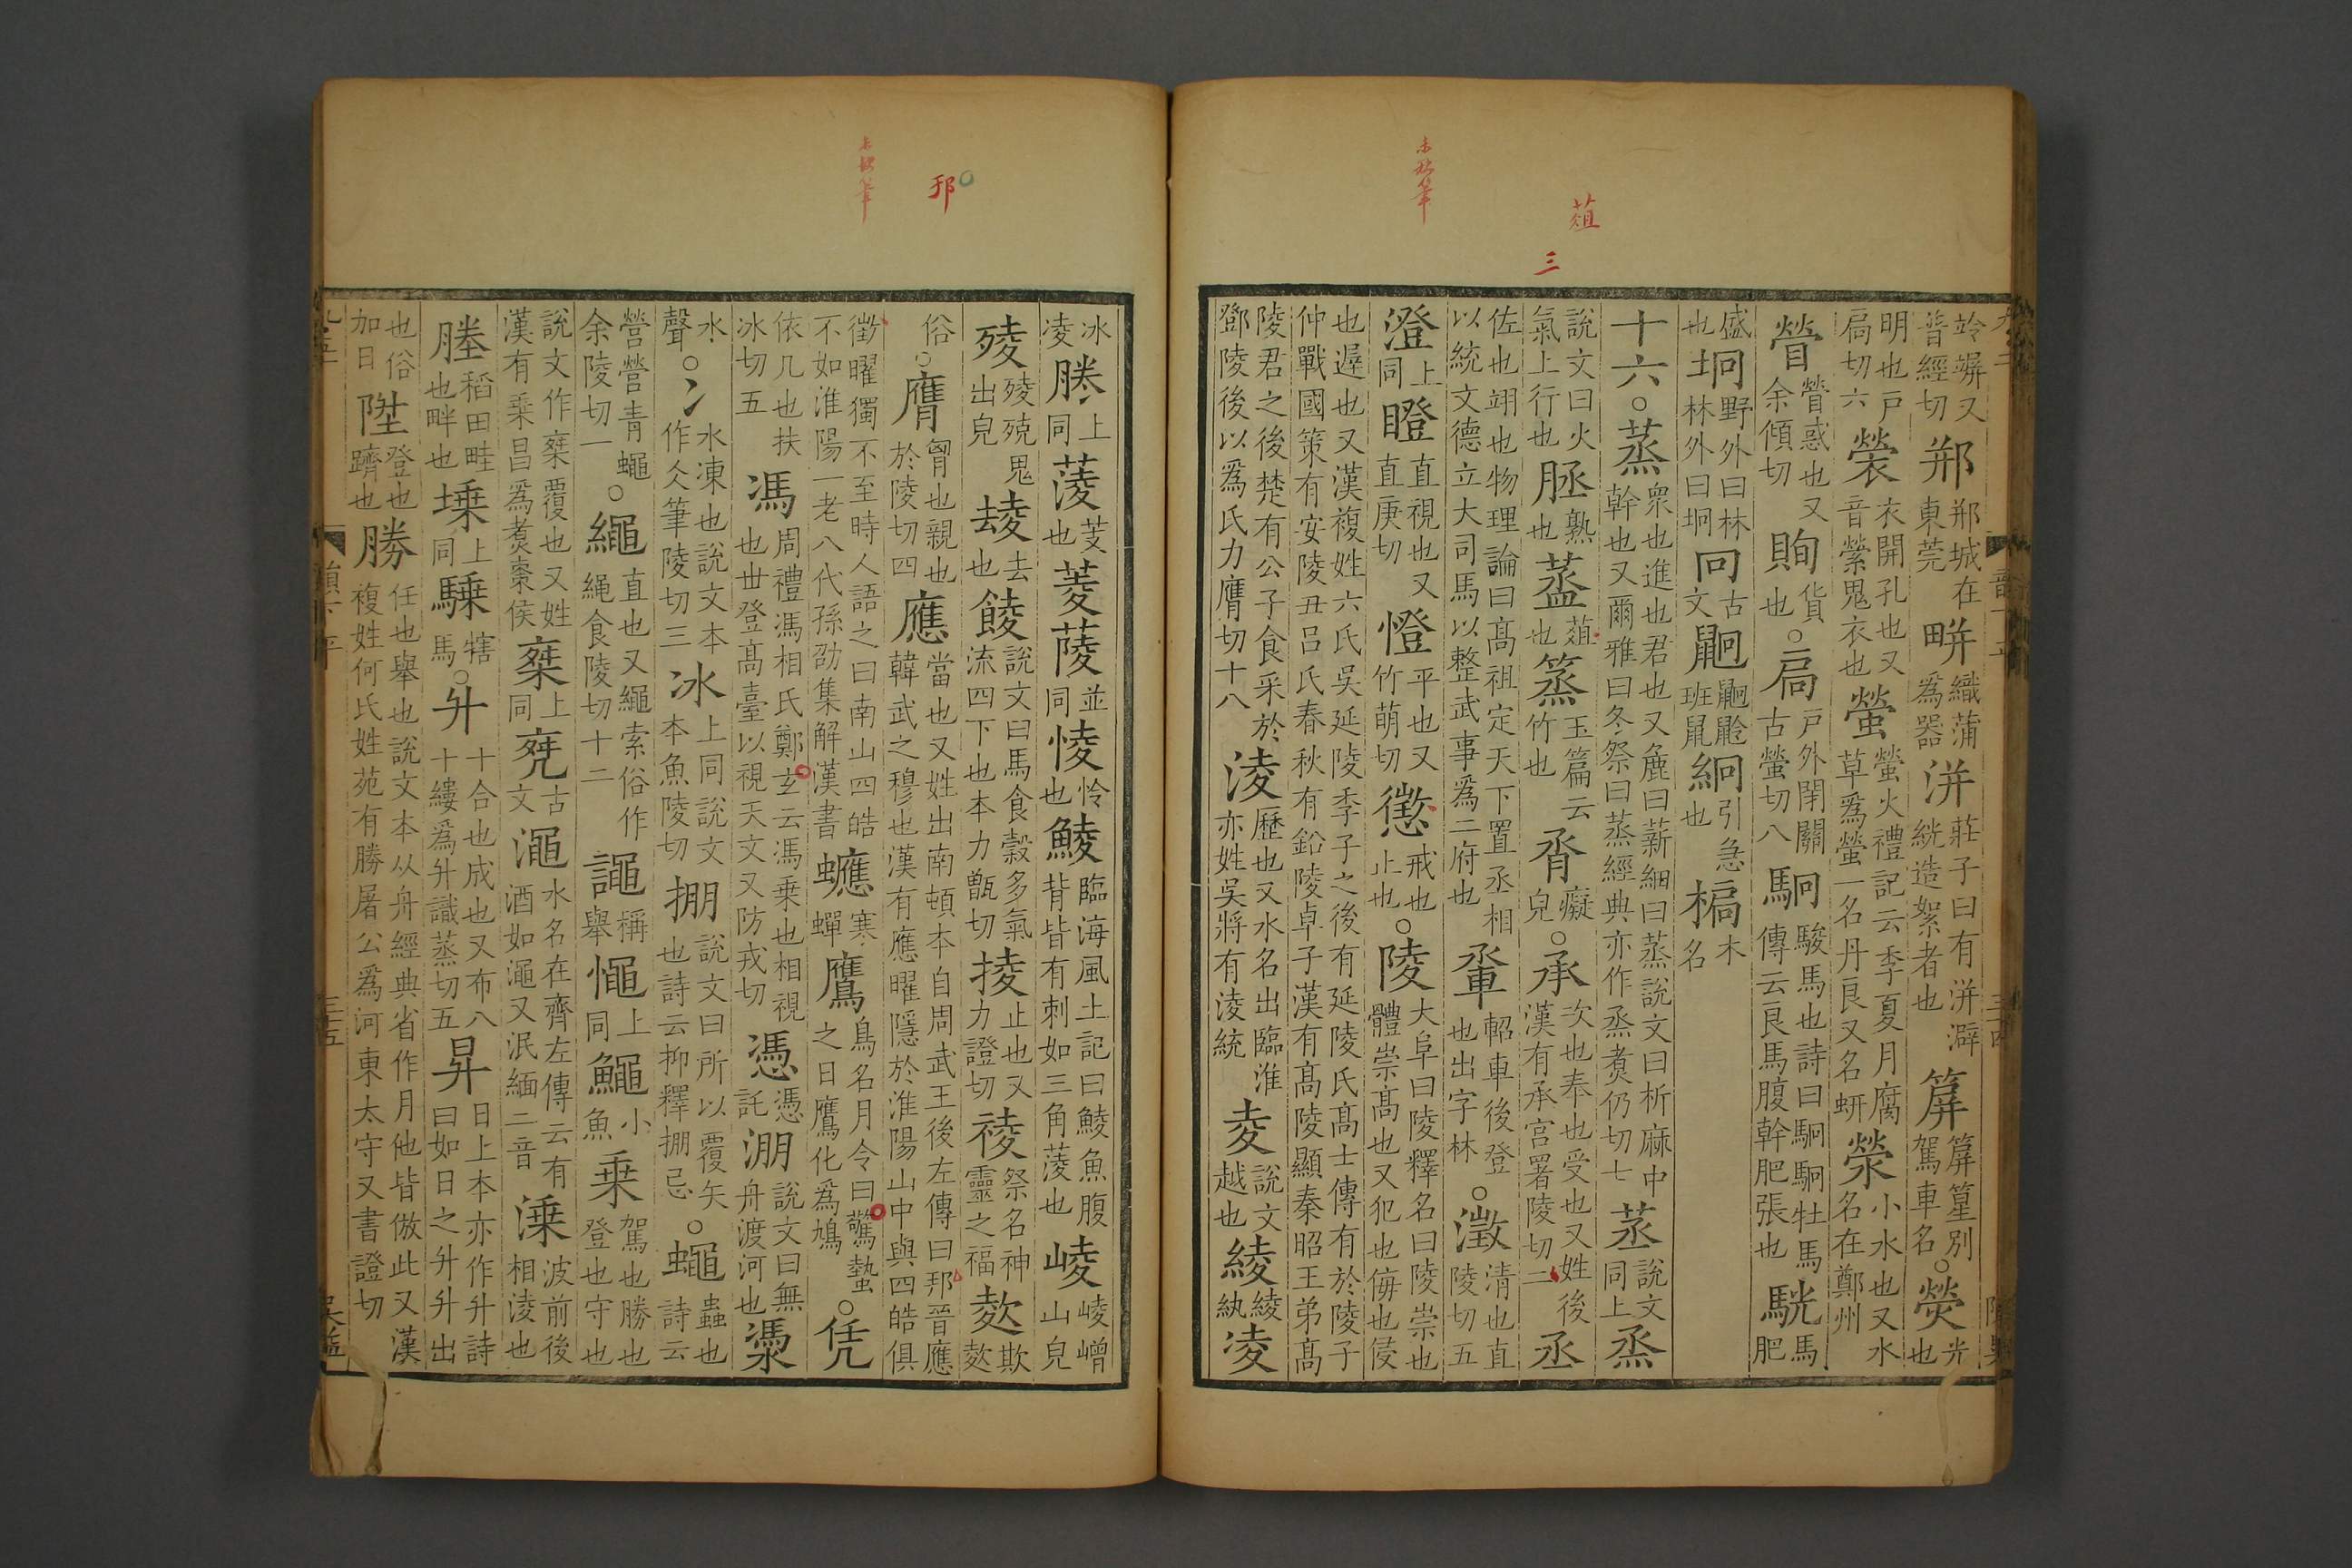 竛竮又普經切郱郱城在東莞䍈織蒲爲器洴莊子曰有洴澼絖造絮者也箳箳篂別駕車名○熒光也
明也戶扃切六褮衣開孔也又音縈鬼衣也螢螢火禮記云季夏月腐草爲螢一名丹良又名蚈滎小水也又水名在鄭州
䁝䁝惑也又余傾切貨也○扃戶外閉關古螢切八駉駿馬也詩曰駉駉牡馬傳云良馬腹幹肥張也駫馬肥
盛也坰野外曰林林外曰坰冋古文班鼠絅引急也木名
十六○蒸衆也進也君也又麁曰薪細曰蒸說文曰析麻中幹也又爾雅曰冬祭曰蒸經典亦作烝煑仍切七說文同上烝
說文曰火氣上行也熟也蒩也篜玉篇云竹也脀癡皃○承次也奉也受也又姓後漢有承宮署陵切二丞
佐也翊也物理論曰髙祖定天下置丞相以統文德立大司馬以整武事爲二府也軺車後登也出字林○澂清也直陵切五
澄上同瞪直視也又直庚切憕平也又竹萌切懲戒也止也○陵大阜曰陵釋名曰陵崇也體崇髙也又犯也侮也侵
也遲也又漢複姓六氏吳延陵季子之後有延陵氏髙士傳有於陵子仲戰國策有安陵丑呂氏春秋有鉛陵卓子漢有髙陵顯秦昭王弟髙
陵君之後楚有公子食采於鄧陵後以爲氏力膺切十八淩歷也又水名出臨淮亦姓吳將有淩統夌說文越也綾綾紈凌
冰凌勝上同蔆芰也菱䔖並同㥄怜也鯪臨海風土記曰鯪魚腹背皆有刺如三角菱也崚崚嶒山皃
㱥㱥殑鬼出皃去也餕說文曰馬食穀多氣流四下也本力甑切掕止也又力證切祾祭名神靈之福欺
俗○膺胷也親也於陵切四應當也又姓出南頓本自周武王後左傳曰邘晉應韓武之穆也漢有應曜隱於淮陽山中與四皓俱
徵曜獨不至時人語之曰南山四皓不如淮陽一老八代孫劭集解漢書蠯寒蟬鷹鳥名月令曰驚蟄之日鷹化爲鳩○凭
依几也扶冰切五馮周禮馮相氏鄭玄云馮乗也相視也世登髙臺以視天文又防戎切憑憑託淜說文曰無舟渡河也
水聲○冫水凍也說文本作仌筆陵切三冰上同說文本魚陵切掤說文曰所以覆矢也詩云抑釋掤忌○蠅蟲也詩云
營營青蠅余陵切一○繩直也又繩索俗作䋲食陵切十二譝稱舉憴上同鱦小魚乗駕也勝也登也守也
說文作椉覆也又姓漢有乗昌爲煑棗侯椉上同古文澠水名在齊左傳云有酒如澠又泯緬二音溗波前後相淩也
塍稻田畦也畔也堘上同騬犗馬○升十合也成也又布八十縷爲升識蒸切五昇日上本亦作升詩曰如日之升升出
也俗加日陞登也躋也勝任也舉也說文本从舟經典省作月他皆倣此又漢複姓何氏姓苑有勝屠公爲河東太守又書證切
蒩
三
邘
三十四
三十五